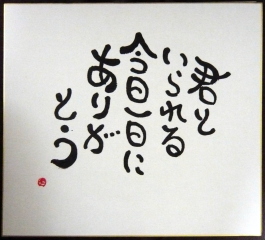 君と
いられる
今日一日に
ありが
とう